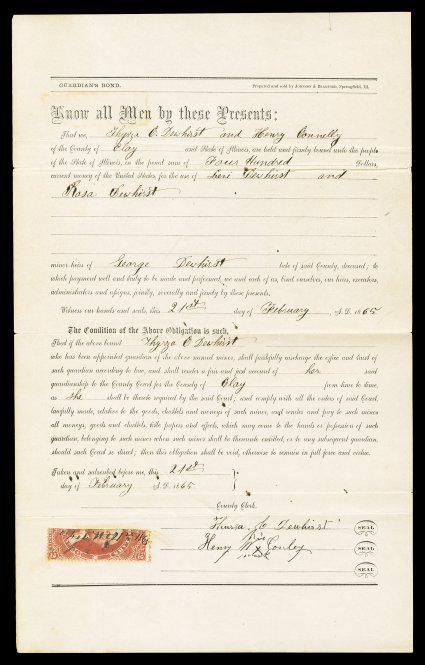 GUARDIAN'S BOND. Prepared and sold by JOHNSON & BRADFORD, Springfield, Ill.
Know all Men by these Presents;
That we, Thyrza C. Dewhirst and Henry Connelly
of the County of Clay and State of Illinois, are held and firmly bound unto the people
of the State of Illinois, in the penal sum of Four Hundred Dollars,
current money of the United States, for the use of Levi Dewhirst and
Rosa Dewhirst
minor heirs of George Dewhirst late of said County, deceased; to
which payment well and truly to be made and performed, we and each of us, bind ourselves, our heirs, executors,
administrators and assigns, jointly, severally and firmly by these presents.
Witness our hands and seals, this 21st day of February A.D. 1865
The Condition of the Above Obligation is such,
That if the above bound Thyrza C Dewhirst
who has been appointed guardian of the above named minors, shall faithfully discharge the office and trust of
such guardian according to law, and shall render a fair and just account of her said
guardianship to the County Court for the County of Clay from time to time,
as she shall be thereto required by the said Court; and comply with all the orders of said Court,
lawfully made, relative to the goods, chattels and moneys of such minors, and render and pay to such minors
all moneys, goods and chattels, title papers and effects, which may come to the hands or possession of such
guardian, belonging to such minors when such minors shall be thereunto entitled, or to any subsequent guardian,
should such Court so direct; then this obligation shall be void, otherwise to remain in full force and virtue.
Taken and subscribed before me, this 21st
day of February A.D. 1865
County Clerk.
Dewhirst SEAL
his
Henry X Conley SEAL
mark
SEAL